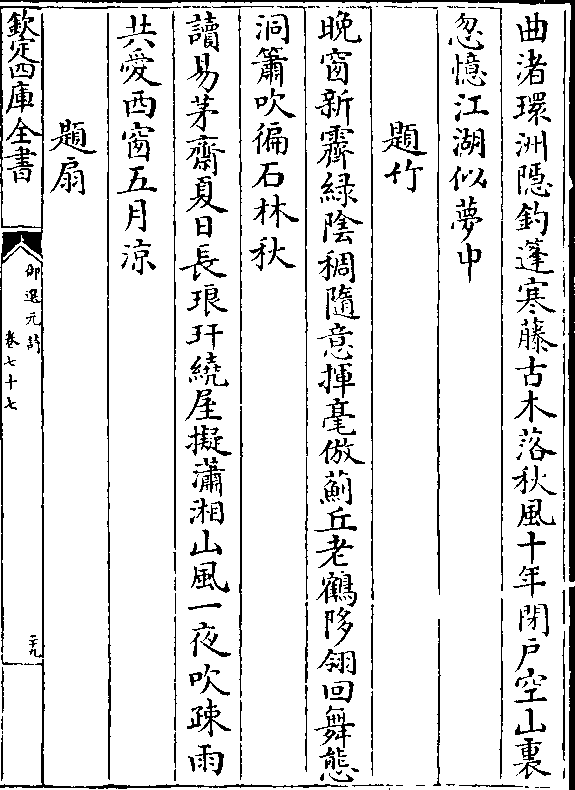 曲渚環洲隱釣蓬寒藤古木落秋風十年閉戸空山裏
忽憶江湖似夢中
題竹
晚窗新霽緑陰稠隨意揮毫倣薊丘老鶴
翎回舞態
洞簫吹徧石林秋
讀易茅齋夏日長琅玕繞屋擬瀟湘山風一夜吹疎雨
共愛西窗五月涼
題扇
欽定四庫全書
御選元詩
卷七十七
二九